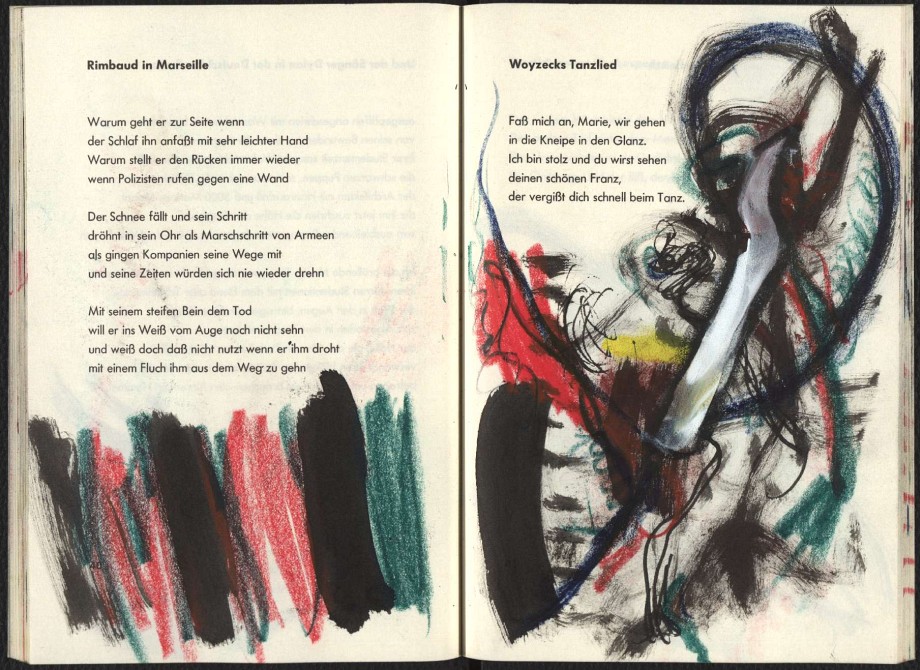 Rimbaud in Marseille
Warum geht er zur Seite wenn
der Schlaf ihn anfaßt mit sehr leichter Hand
Warum stellt er den Rücken immer wieder
wenn Polizisten rufen gegen eine Wand
Der Schnee fällt und sein Schritt
dröhnt in sein Ohr als Marschschritt von Armeen
als gingen Kompanien seine Wege mit
und seine Zeiten würden sich nie wieder drehn
Mit seinem steifen Bein dem Tod
will er ins Weiß vom Auge noch nicht sehn
und weiß doch daß nicht nutzt wenn er ihm droht
mit einem Fluch ihm aus dem Weg zu gehn
Woyzecks Tanzlied
Faß mich an, Marie, wir gehen
in die Kneipe in den Glanz.
Ich bin stolz und du wirst sehen
deinen schönen Franz,
der vergißt dich schnell beim Tanz.